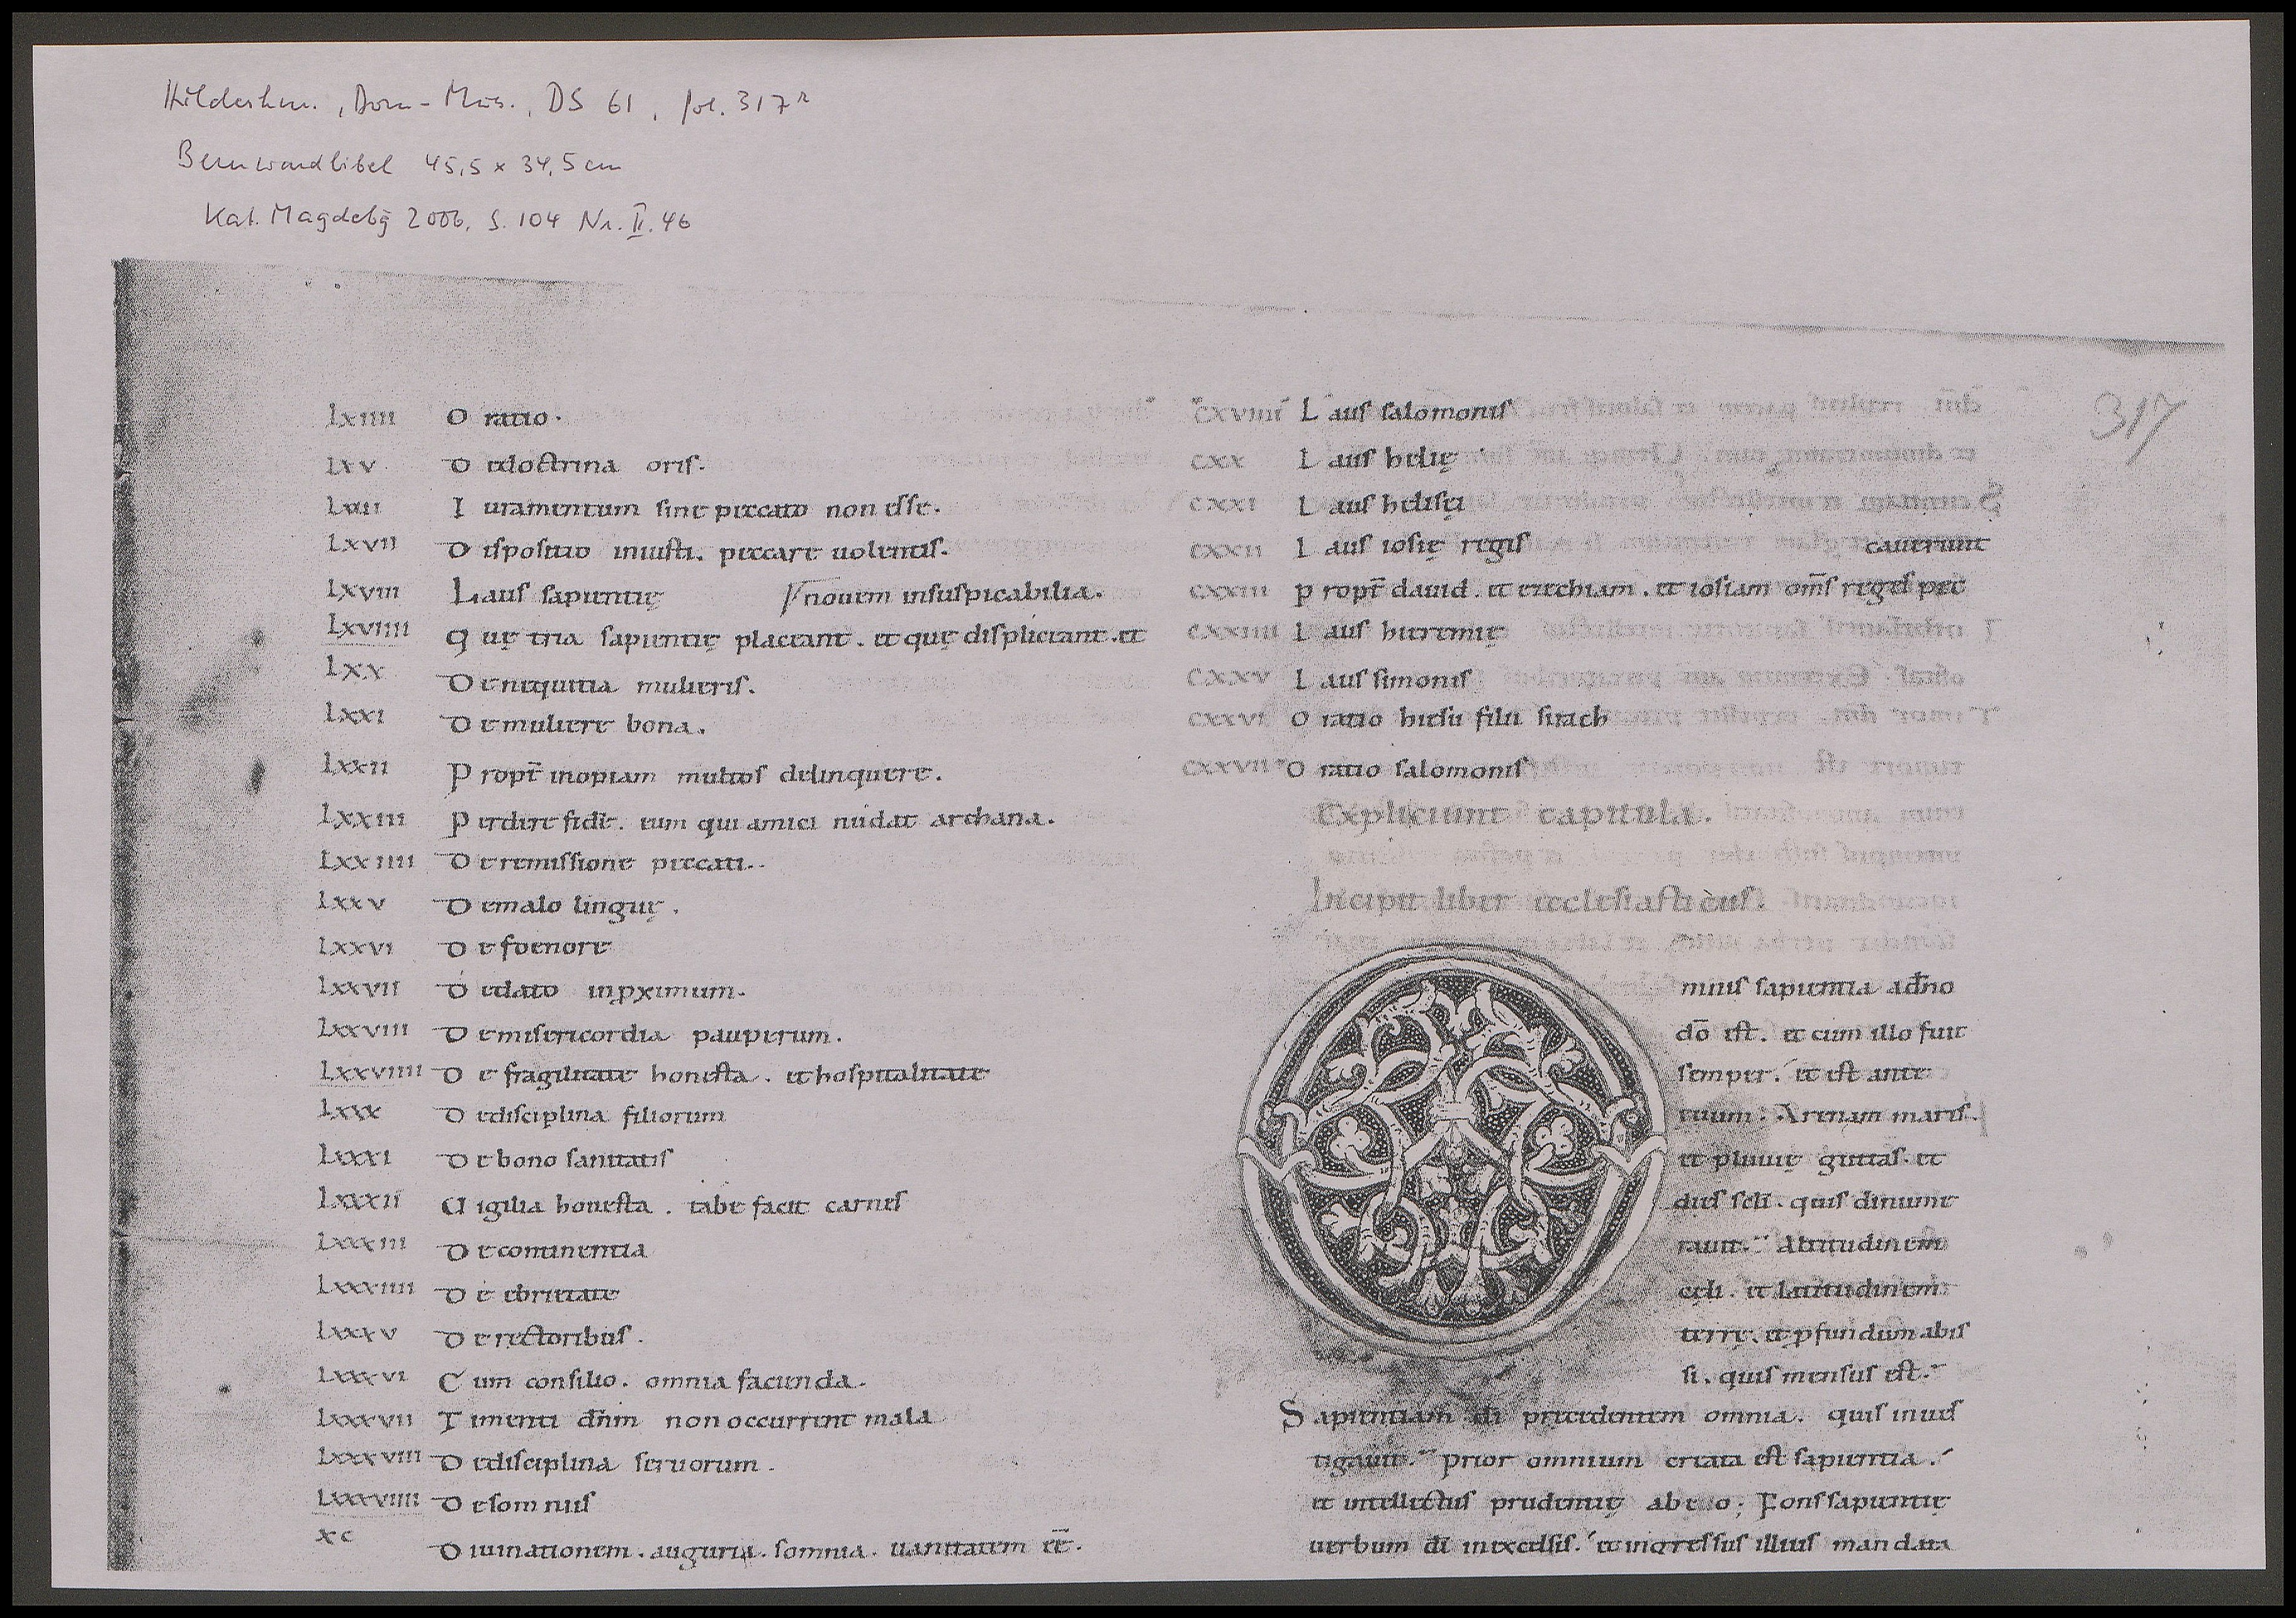 Hildeshm., Dom-Mus., DS 61, fol. 317r
Bernwardbibel 45,5 x 34,5 cm
Kat. Magdebg 2006, S. 104 Nr. II.46
317
lxiiii O ratio.
lxv D edoctrina oris.
lxvi I uramentum sine peccato non esse.
lxvii D ispositio iniusti. peccare uolentis.
lxviii Laus sapientię novem insuspicabilia.
lxviiii Q uę tria sapientię placeant. et quę displiceant. et
lxx D enequitia mulieris.
lxxi D emuliere bona.
lxxii P ropt̄ inopiam multos delinquere.
lxxiii P erdere fidē. eum qui amici nudat archana.
lxxiiii D eremissione peccati.
lxxv D emalo linguę.
lxxvi D efoenore
lxxvii D edato inpximum.
lxxviii D emisericordia pauperum.
lxxviiii D e fragilitate honesta. et hospitalitate
lxxx D edisciplina filiorum
lxxxi D e bono sanitatis
lxxxii U igilia honesta. tabe facit carnes
lxxxiii D econtinentia
lxxxiiii D e ebrietate
lxxxv D erectoribus.
lxxxvi C um consilio. omnia facienda.
lxxxvii T imenti dn̄m non occurrent mala
lxxxviii D edisciplina seruorum.
lxxxviiii D esomniis
xc D iuinationem. auguria. somnia. uanitatem eē.
cxviiii L aus salomonis
cxx L aus helię
cxxi L aus helisęi
cxxii L aus iosię regis cauerunt
cxxiii P ropt̄ dauid. et ezechiam. et iosiam om̄s reges pec
cxxiiii L aus hieremię
cxxv L aus simonis
cxxvi O ratio hiesu filii sirach
cxxvii O ratio salomonis
Expliciunt capitula.
Incipit liber ecclesiasticus.
mnis sapientia adn̄o
dō est. et cum illo fuit
semper. et est ante
euum. Arenam maris.
et pluuię guttas. et
dies scl̄i. quis dinume
rauit. Altitudinem
cęli. et latitudinem
terrę. et pfundum abis
si. quis mensus est.
S apientiam dī precedentem omnia. quis inues
tigauit. prior omnium creata est sapientia.
et intellectus prudentię ab eo; Fons sapientię
uerbum dī inexcelsis. et ingressus illius mandata